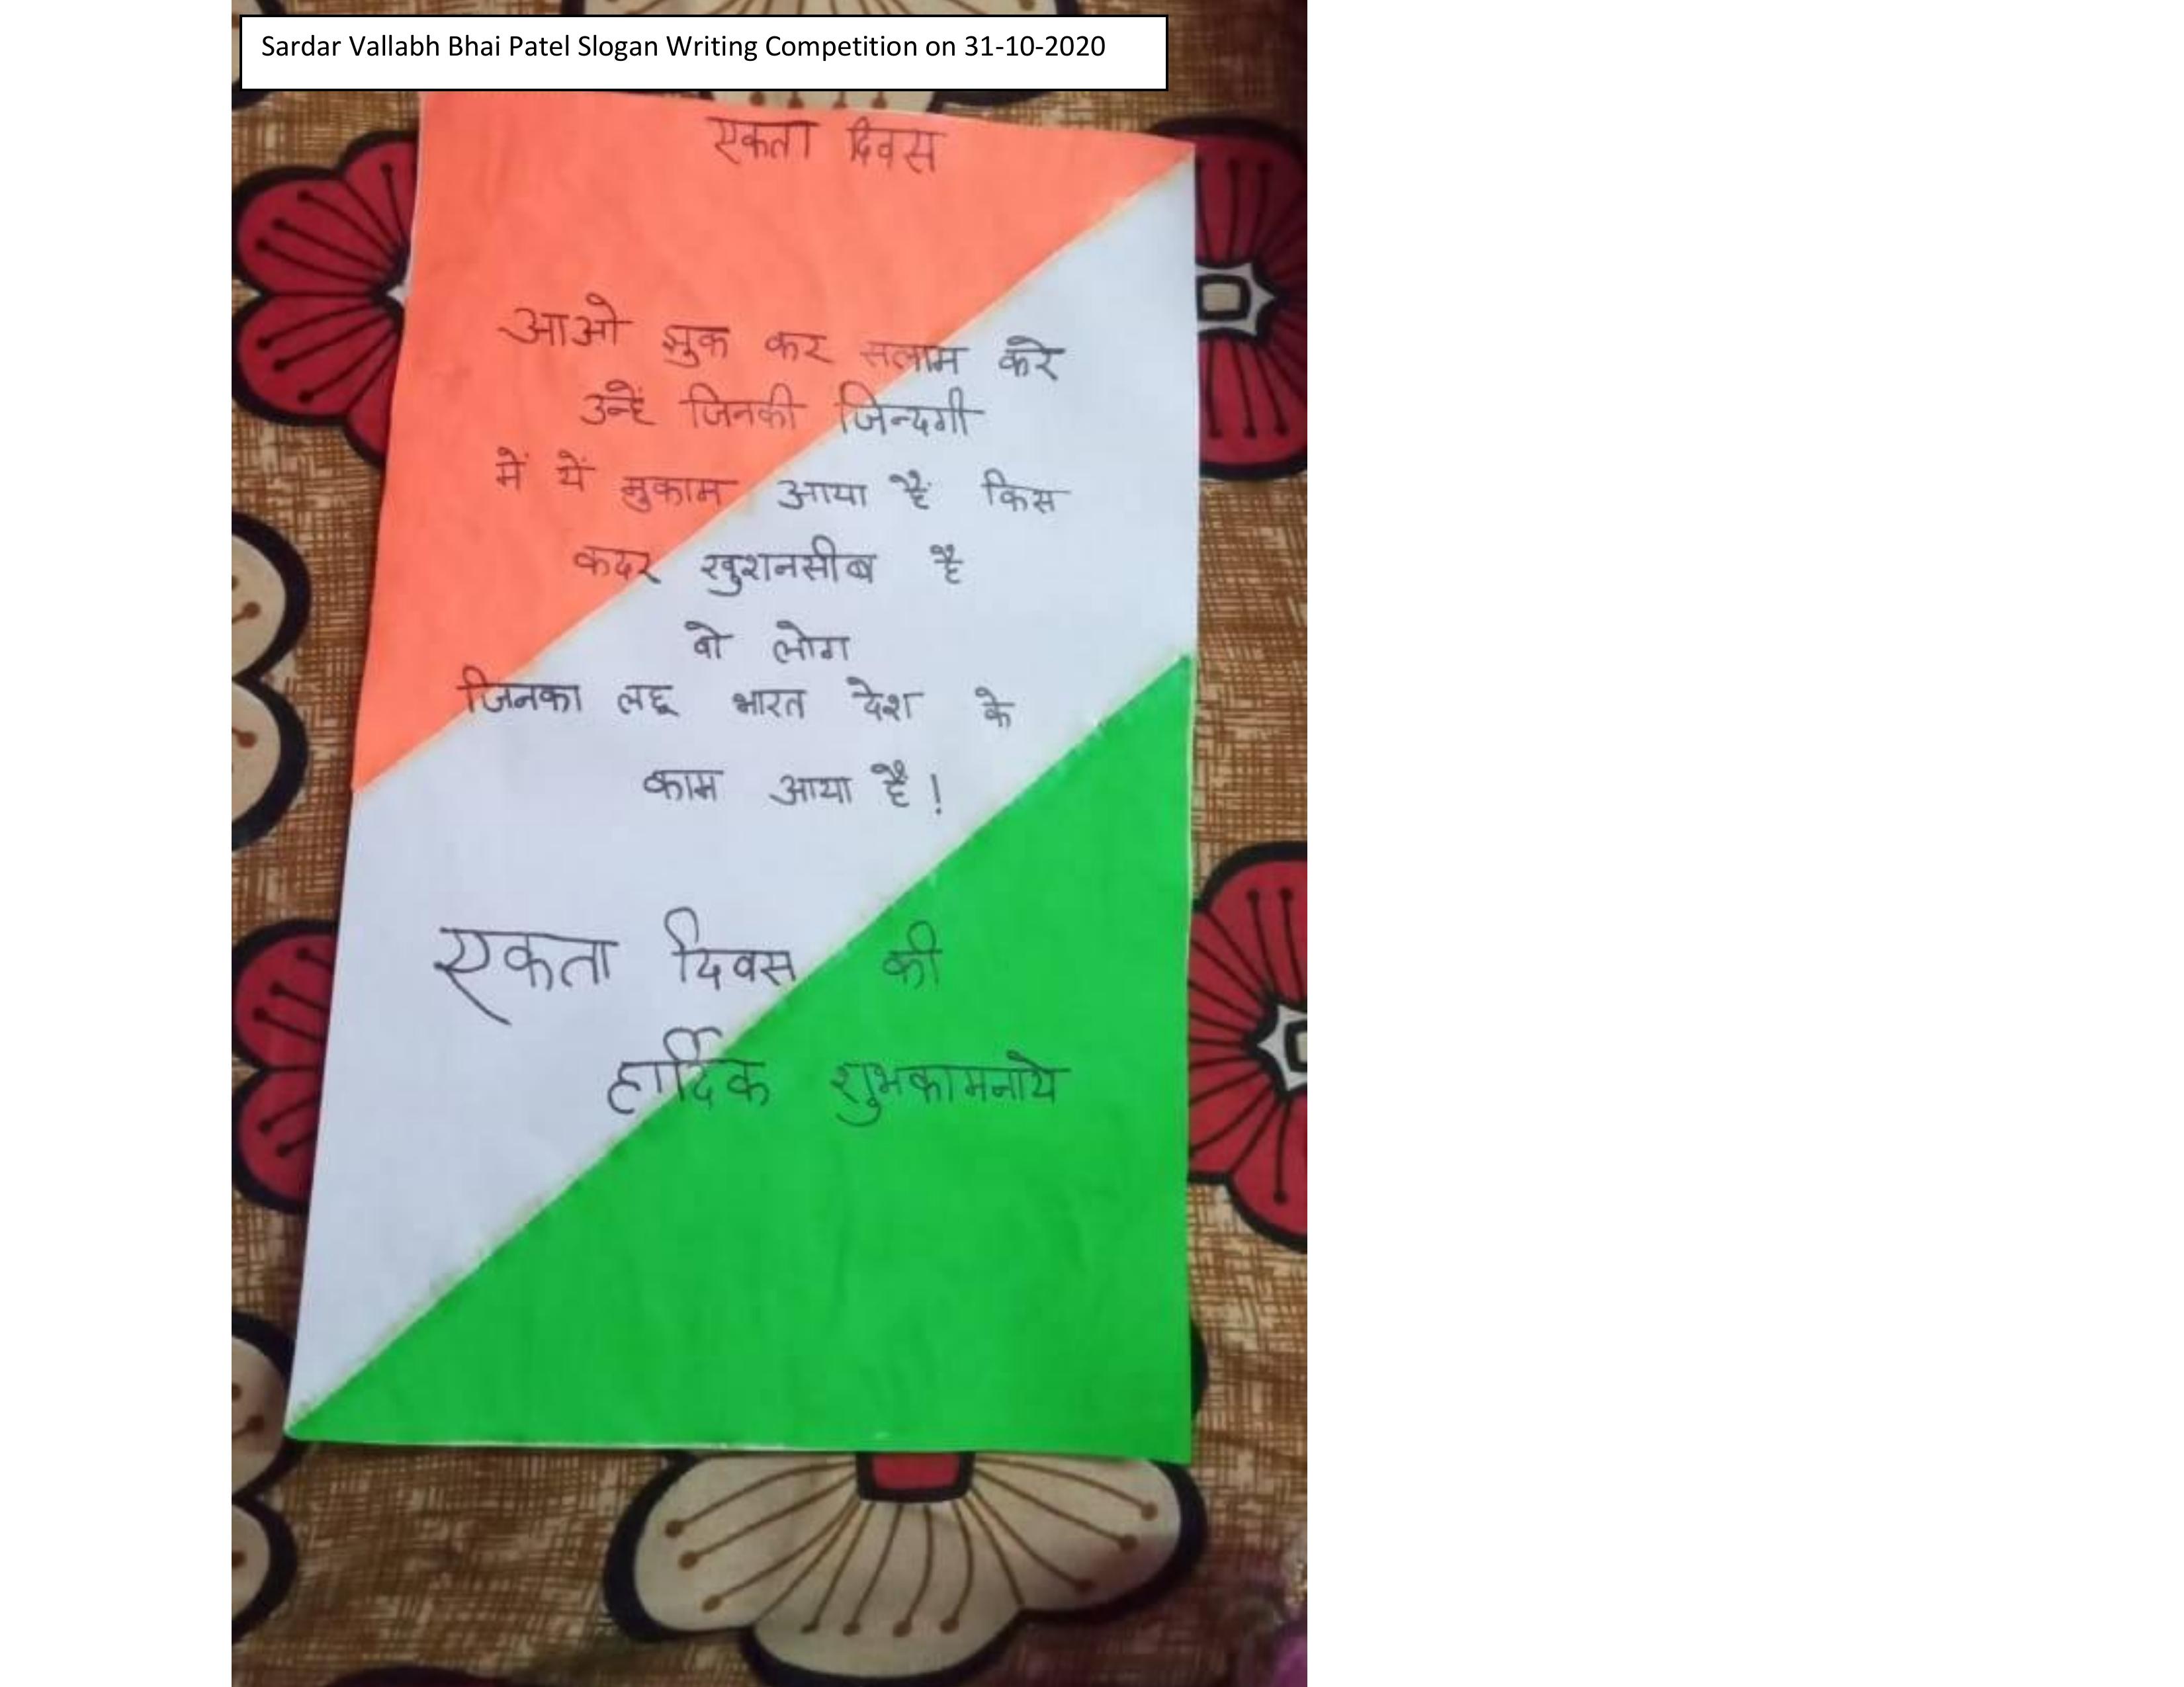 Sardar Vallabh Bhai Patel Slogan Writing Competition on 31-10-2020
एकता दिवस
आओ झुक कर सलाम करे
उन्हें जिनकी जिन्दगी
में यें मुकाम आया हैं किस
कदर खुशनसीब है
वो लोग
जिनका लहू भारत देश के
काम आया है!
एकता दिवस की
हार्दिक शुभकामनाये